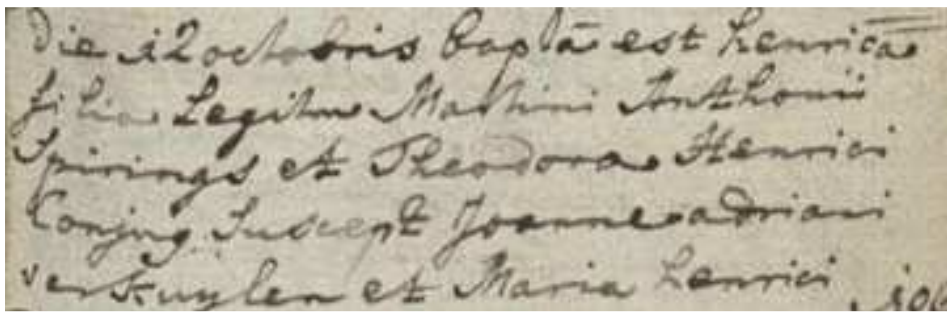 Die 12 octobris bapta est henrica
filia Legitm Martini Anthonii
Spirings et Theodora Henrici
Conjug Suscept Joanne adriani
verkuylen et Maria henrici